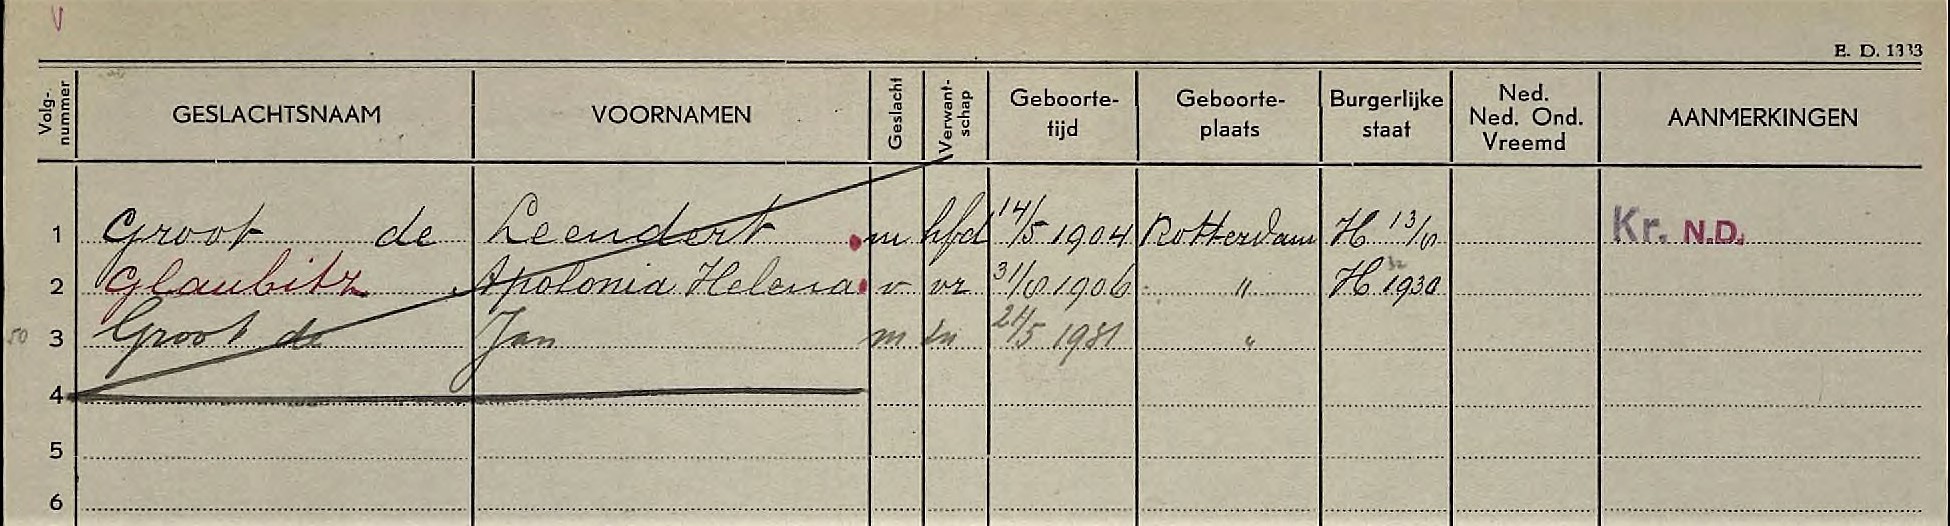 V
E. D. 1333
Volg-nummer GESLACHTSNAAM VOORNAMEN Geslacht Verwant-schap Geboorte-tijd Geboorte-plaats Burgerlijke staat Ned. Ned. Ond. Vreemd AANMERKINGEN
1 Groot de Leendert m hfd 14/5 1904 Rotterdam H 13/8 Kr. N.D.
2 Glaubitz Apolonia Helena v vr 31/8 1906 " H 1930
50 3 Groot de Jan m zn 21/5 1931 "
4
5
6